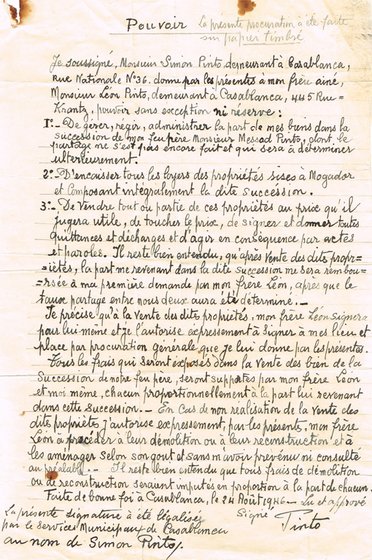 Pouvoir
La presente procuration a été faite
sur papier timbré
Je soussigné, Monsieur Simon Pinto, demeurant à Casablanca,
Rue Nationale N°36. donne par les présentes à mon frère ainé,
Monsieur Léon Pinto, demeurant à Casablanca, 445 Rue-
Krantz, pouvoir sans exception ni réserve:
1°- De gérer, régir, administrer la part de mes biens dans la
succession de mon feu frère Monsieur Messod Pinto, dont le
partage ne s'est pas encore fait et qui sera à déterminer
ulterieurement.
2°- D'encaisser tous les loyers des propriétés sises à Mogador
et composant intégralement la dite Succession.
3°- De Vendre tout ou partie de ces propriétés au prix qu'il
jugera utile, de toucher le prix, de signer et donner toutes
quittances et décharges et d'agir en conséquence par actes
et paroles. Il reste bien entendu, qu'après Vente des dites propr=
=iétés, la part me revenant dans la dite succession me sera rembou=
=rsée à ma première demande par mon frère Léon, après que le
taux partage entre nous deux aura été déterminé.-
Je précise qu'à la Vente des dites propriétés, mon frère Léon Signera
pour lui même et je l'autorise expressement à Signer à mes lieu et
place par procuration générale que je lui donne par les présentes.
Tous les frais qui seront exposés dans la Vente des bien de la
Succession de notre feu frère, seront supportés par mon frère Léon
et moi même, chacun proportionnellement à la part lui revenant
dans cette Succession.- En Cas de non réalisation de la Vente des
dites propriétés j'autorise expressement, par les présents, mon frère
Léon à procéder à leur démolition ou à leur reconstruction et à
les aménager selon son goût et sans m'avoir prévenu ni consulté
au préalable.- Il reste bien entendu que tous frais de démolition
ou de reconstruction seraient imputés en proportion à la part de chacun.
Faite de bonne foi à Casablanca, le 24 Août 1946- Lu et approuvé
Signé
Pinto
La présente signature à été légalisée
par le Services Municipaux de Casablanca
au nom de Simon Pinto.